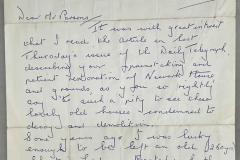 Dear Mr Parsons
It was with great interest
that I read the article in last
Thursday's issue of the Daily Telegraph,
describing your and
patient restoration of House
and grounds, as you so rightly
say it's such a pity to see these
lovely old houses condemned to
decay and demolition.
years ago I was lucky
enough to be left an old